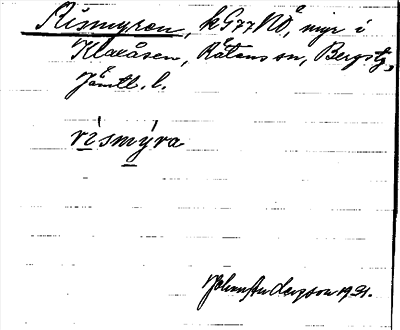 Rismyren, k G77 NO, myr i
Klaxåsen, Rätans sn, Bergs tg,
Jämtl. l.
rísmýra
Johan Andersson 1931.